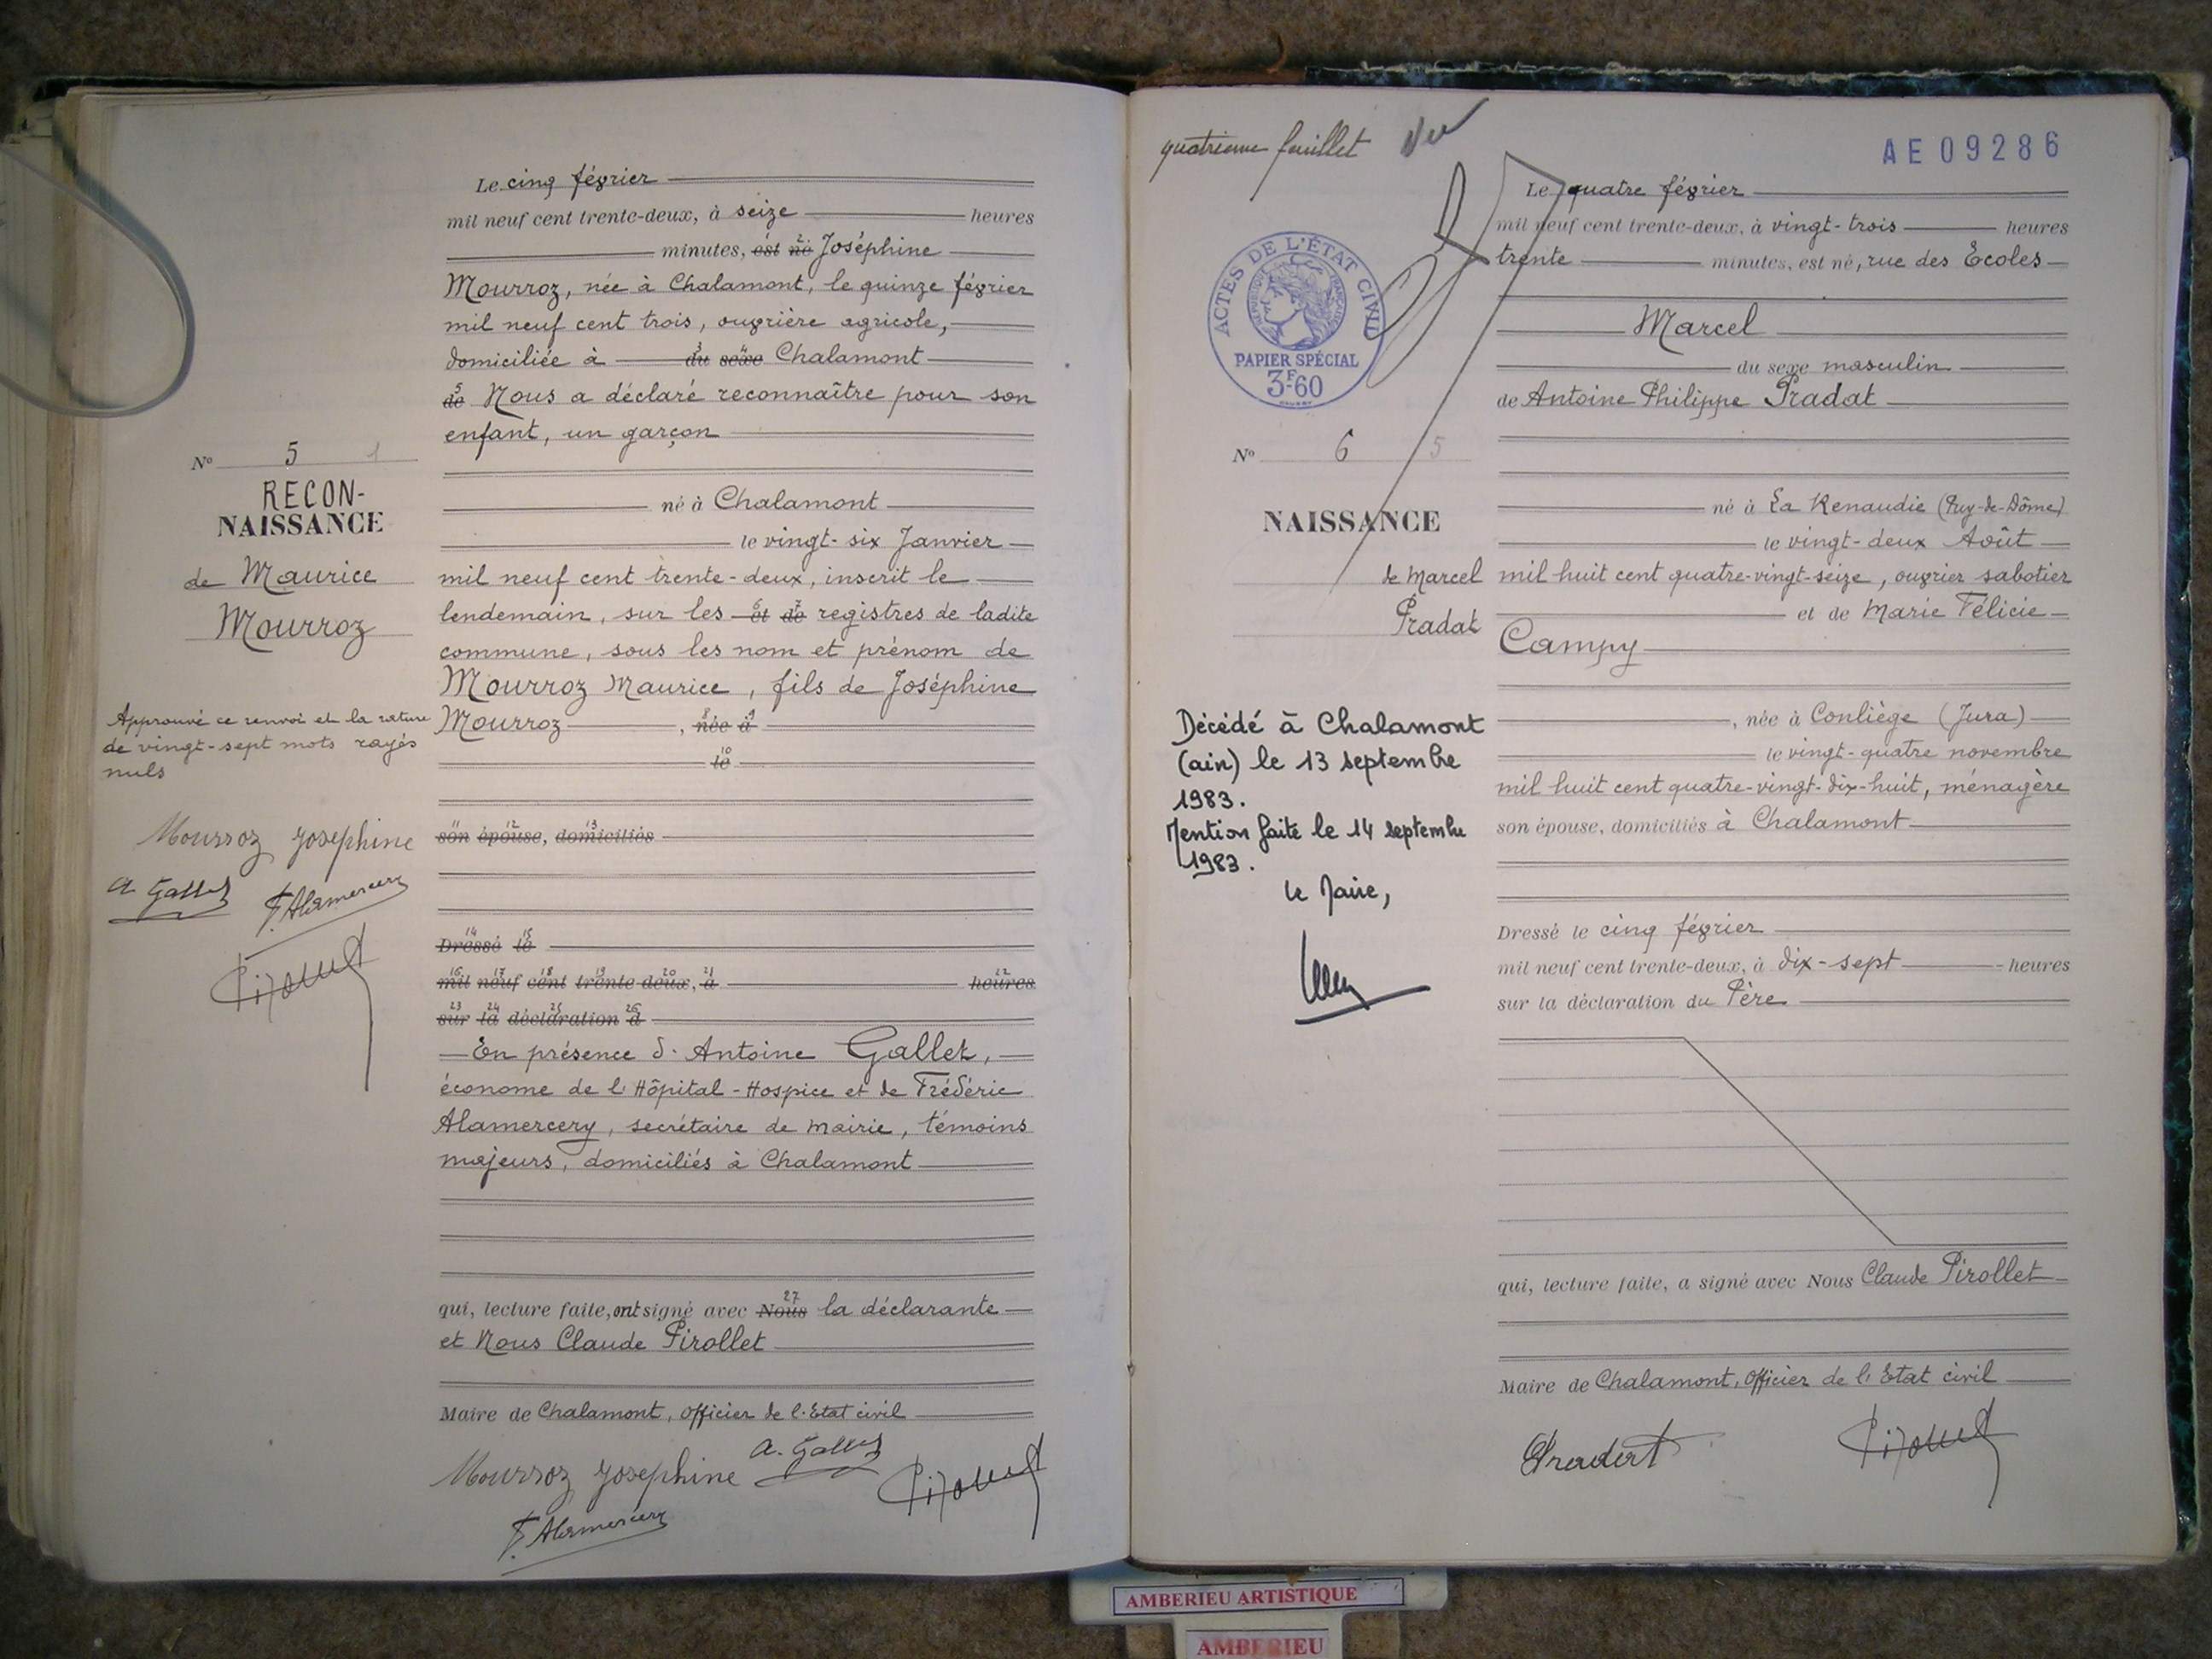 Le cinq février
mil neuf cent trente-deux, à seize heures
minutes, est né Joséphine
Mourroz, née à Chalamont, le quinze février
mil neuf cent trois, ouvrière agricole,
domiciliée à du sexe Chalamont
de Nous a déclaré reconnaître pour son
enfant, un garçon
né à Chalamont
le vingt-six Janvier
mil neuf cent trente-deux, inscrit le
lendemain, sur les et de registres de ladite
commune, sous les nom et prénom de
Mourroz Maurice, fils de Joséphine
Mourroz, née à
le
son épouse, domiciliés
Dressé le
mil neuf cent trente deux, à heures
sur la déclaration d
En présence d'Antoine Gallet,
économe de l'Hôpital-Hospice et de Frédéric
Alamercery, secrétaire de mairie, témoins
majeurs, domiciliés à Chalamont
qui, lecture faite, ont signé avec Nous la déclarante
et Nous Claude Pirollet
Maire de Chalamont, Officier de l'Etat civil
Mourroz Josephine A. Gallet Pirollet
F. Alamercery
N° 5 1
RECON-
NAISSANCE
de Maurice
Mourroz
Approuvé ce renvoi et la rature
de vingt-sept mots rayés
nuls
Mourroz Josephine
A. Gallet F. Alamercery
Pirollet
quatrième feuillet Vu
AE 09286
ACTES DE L'ÉTAT CIVIL
PAPIER SPÉCIAL
3F60
N° 6 5
NAISSANCE
de Marcel
Pradat
Décédé à Chalamont
(ain) le 13 septembre
1983.
Mention faite le 14 septembre
1983.
Le Maire,
Le quatre février
mil neuf cent trente-deux, à vingt-trois heures
trente minutes, est né, rue des Ecoles
Marcel
du sexe masculin
de Antoine Philippe Pradat
né à La Renaudie (Puy-de-Dôme)
le vingt-deux Août
mil huit cent quatre-vingt-seize, ouvrier sabotier
et de Marie Félicie
Campy
, née à Conliège (Jura)
le vingt-quatre novembre
mil huit cent quatre-vingt-dix-huit, ménagère
son épouse, domiciliés à Chalamont
Dressé le cinq février
mil neuf cent trente-deux, à dix-sept heures
sur la déclaration du Père
qui, lecture faite, a signé avec Nous Claude Pirollet
Maire de Chalamont, Officier de l'Etat civil
Pradat Pirollet
AMBERIEU ARTISTIQUE
AMBERIEU